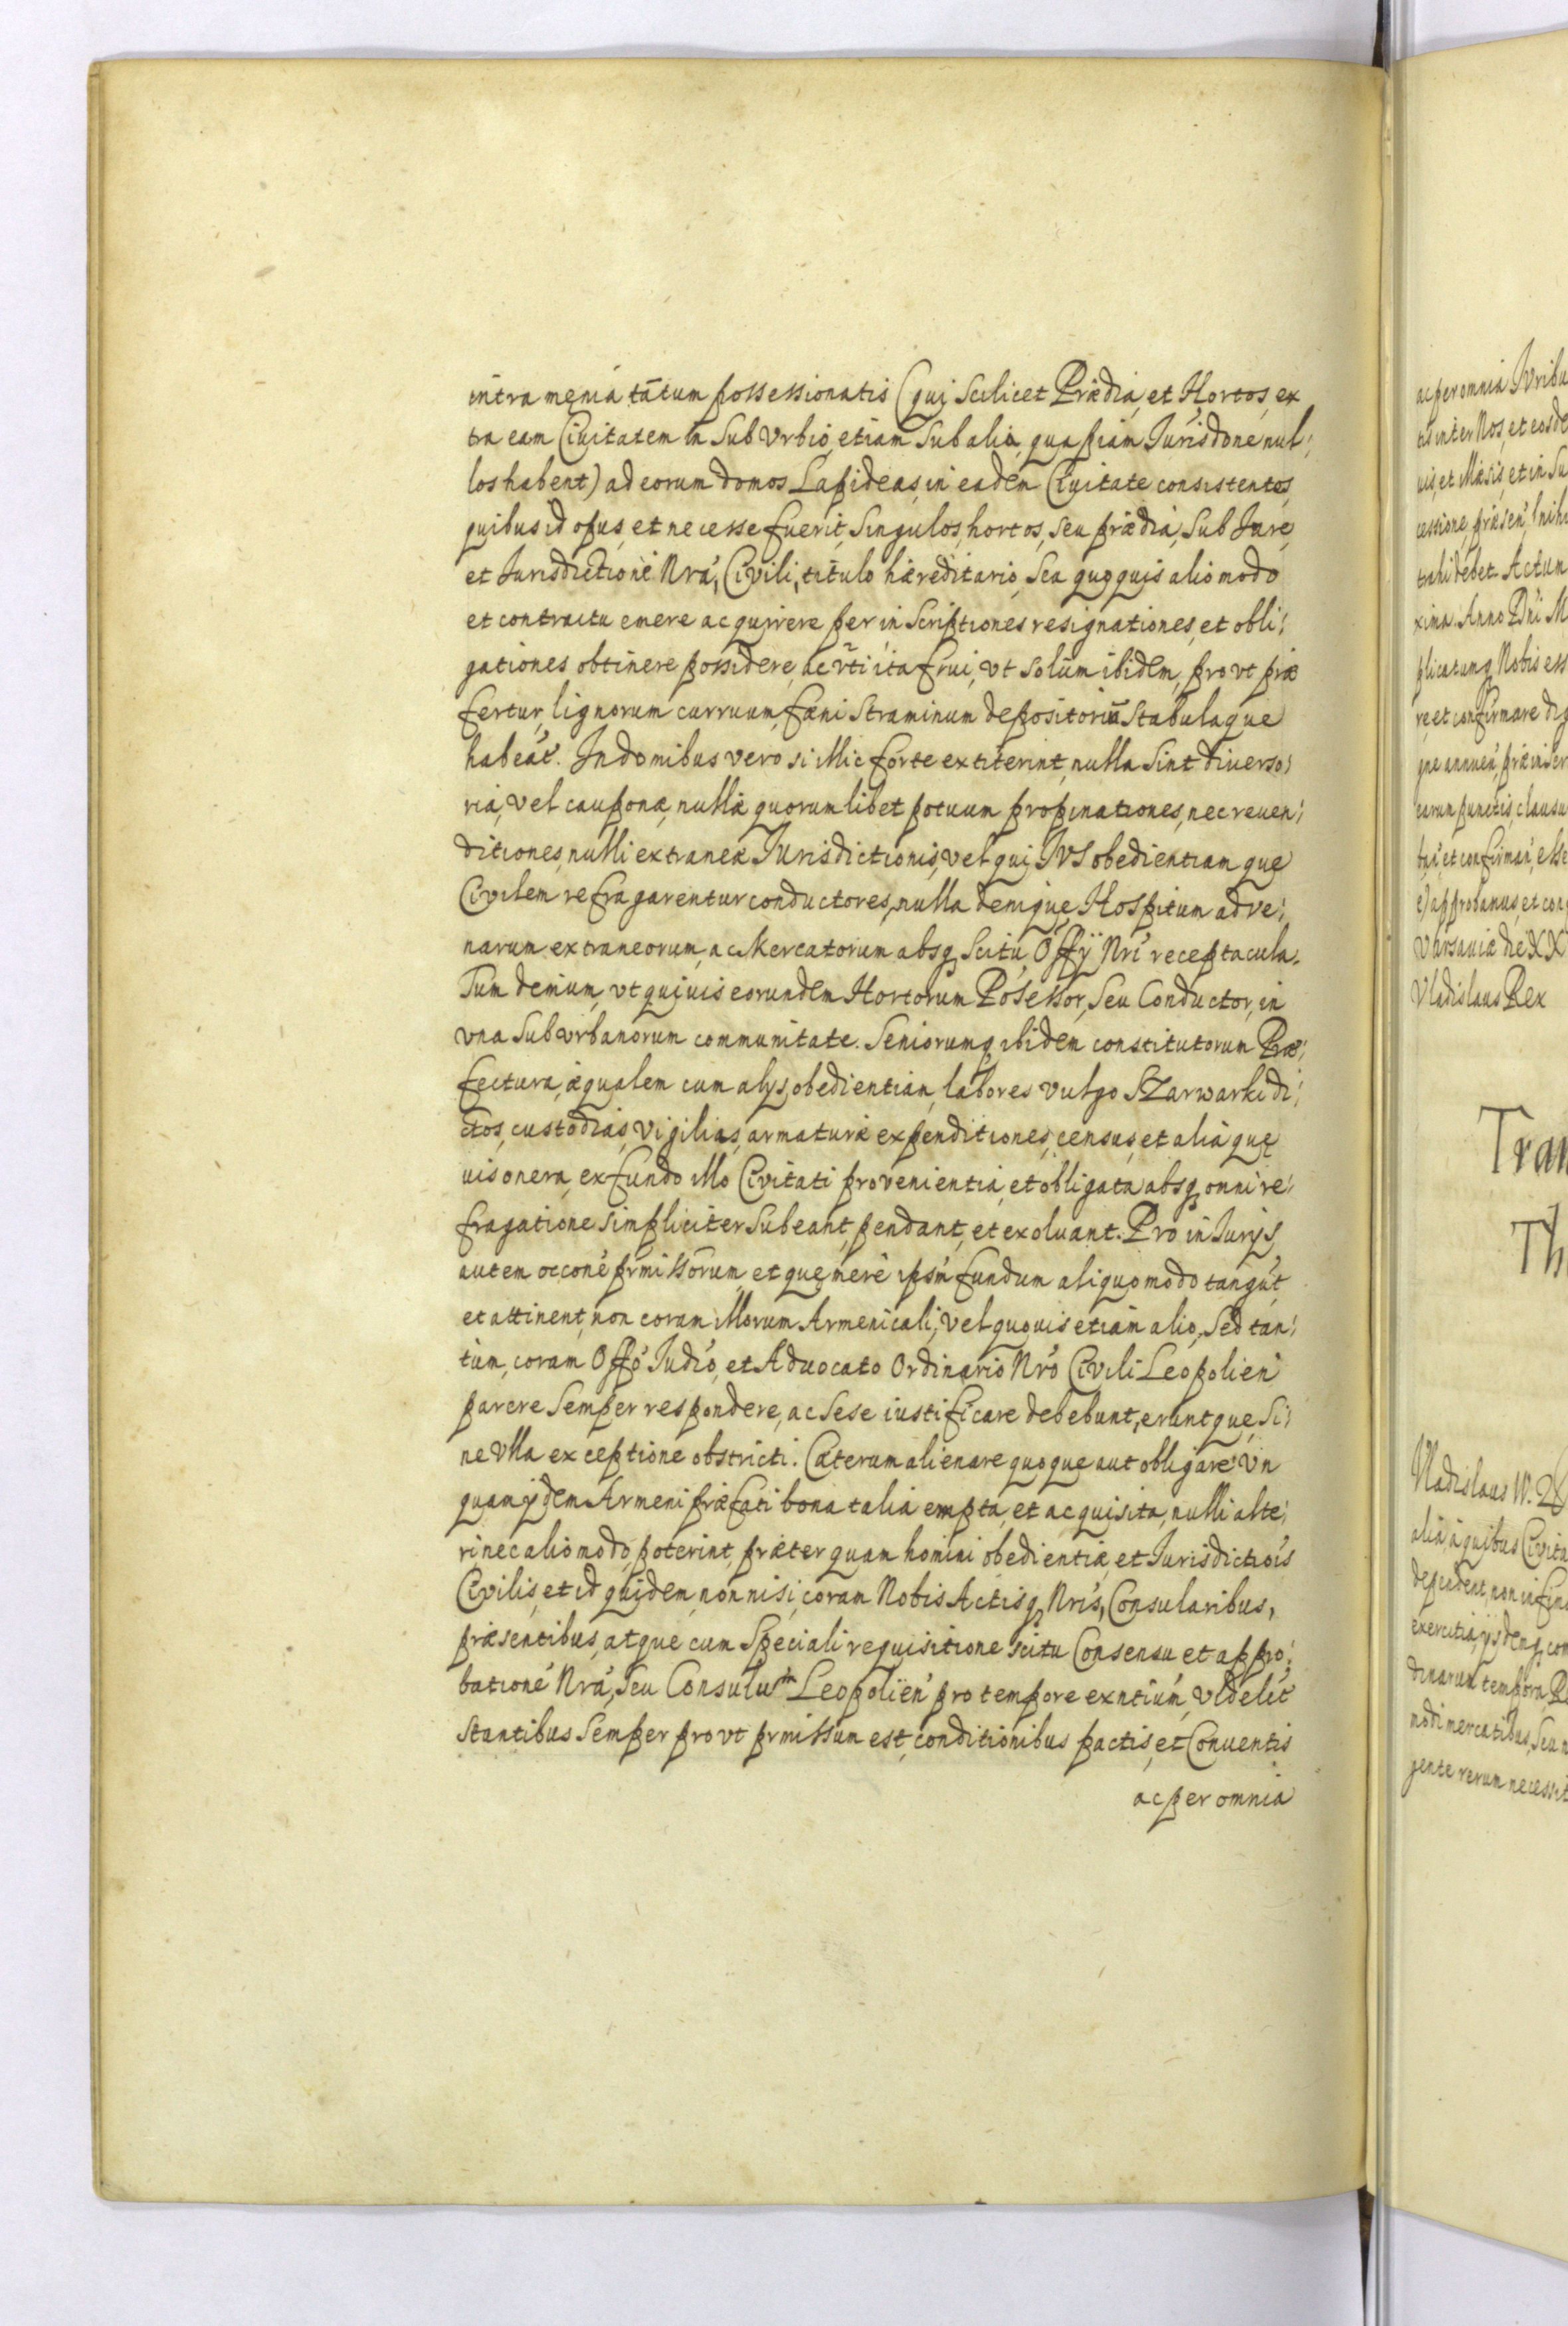 intra męnia tātum possessionatis (qui Scilicet Prædia, et Hortos, ex
tra eam Civitatem in SubVrbio, etiam Sub alia, quapiam Jurisdōne nul:
los habent) ad eorum domos Lapideas, in eadem Civitate consistentes,
quibus id opus, et necesse fuerit, Singulos, hortos, seu prædia, Sub Jure,
et Jurisdictione Nra, Civili, titulo hæreditario, Seu quoquis alio modo
et contractu emere acquirere per inscriptiones resignationes, et obli:
gationes obtinere possidere, ac vti ita frui, vt Solum ibidem, pro vt præ
fertur, lignorum curruum, fæni Straminum depositoriū Stabulaque
habeāt. In domibus vero si illic forte extiterint, nulla Sint diverso:
ria, vel cauponæ, nullæ quorumlibet potuum propinationes, nec reven:
ditiones, nulli extraneæ Jurisdictionis, vel qui JVS obedientiam que
Civilem refragarentur conductores, nulla denique, Hospitum adve:
narum extraneorum, ac Mercatorum absq Scitu, Offÿ Nri receptacula.
Tum demum, vt quivis eorundem Hortorum Possessor, Seu Conductor, in
vna Subvrbanorum communitate. Seniorumq ibidem constitutorum Præ:
fectura, æqualem cum alys, obedientiam, labores vulgo SZarwarki di:
ctos, custodias, vigilias, armaturæ expenditiones, census, et alia que
vis onera, ex fundo illo Civitati provenientia, et obligata absq omni re:
fragatione simpliciter Subeant, pendant, et exoluant. Pro injurÿs,
autem occone prmissorum, et que mere ipsm fundum aliquo modo tangūt,
et attinent, non coram illorum Armenicali, vel quovis etiam alio, Sed tan:
tum, coram Offo Judio, et Advocato Ordinario Nro Civili Leopolien
parere Semper respondere, ac Sese iustificare debebunt, erunt que, Si:
ne vlla exceptione obstricti. Cæterum alienare quoque aut obligare Vn
quam ÿdem Armeni præfati bona talia empta, et acquisita, nulli alte:
ri nec alio modo, poterint, præterquam homini obedientiæ, et Jurisdictiois
Civilis, et id quidem, non nisi, coram Nobis Actisq Nris, Consularibus,
præsentibus, atque cum Speciali requisitione scitu Consensu et appro:
batione Nra, Seu Consulum Leopolien pro tempore exntium, Vldelit
Stantibus Semper pro vt prmissum est, conditionibus pactis, et Conventis
ac per omnia
ac per omnia Juribu
tis inter Nos, et eosde
cessione, præsen, nihi
trahi debet. Actum
xima. Anno Dni M
plicatumq Nobis ess
re, et confirmare dig
earum punctis, clausu
e) approbamus, et con
Varsaviæ die XX
Vladislaus Rex
Tran
Th
Vladislaus IV. D
alia a quibus Civita
dependent, non infim
exercitia, ÿsdemq com
dinarum tempora
modi mercatibus, Seu n
gente rerum necessit